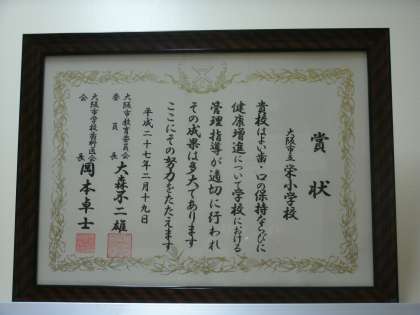 賞状
大阪市立栄小学校
貴校はよい歯・口の保持ならびに
健康増進について学校における
管理指導が適切に行われ
その成果は多大であります
ここにその努力をたたえます
平成二十七年二月十九日
大阪市教育委員会
委員長 大森不二雄
大阪市学校歯科医会
会長 岡本卓士